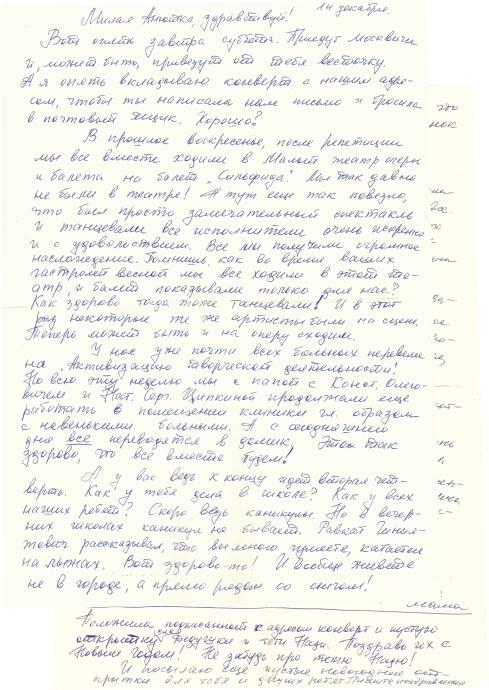 14 декабря.
Милая Анютка, здравствуй!
Вот опять завтра суббота. Приедут москвичи
и, может быть, привезут от тебя весточку.
А я опять вкладываю конверт с нашим адре-
сом, чтобы ты написала нам письмо и бросила
в почтовый ящик. Хорошо?
В прошлое воскресенье, после репетиции
мы все вместе ходили в Малый театр оперы
и балета на балет „Сильфида". Мы так давно
не были в театре! А тут еще так повезло,
что был просто замечательный спектакль
и танцевали все исполнители очень искренно
и с удовольствием. Все мы получили огромное
наслаждение. Помнишь, как во время ваших
гастролей весной мы все ходили в этот те-
атр, и балет показывали только для нас?
Как здорово тогда тоже танцевали! И в этот
раз некоторые те же артисты были на сцене.
Теперь может быть и на оперу сходим.
У нас уже почти всех больных перевели
на „Активизацию творческой деятельности"!
Но всю эту неделю мы с папой с Конст. Олего-
вичем и Нат. Серг. Циткиной продолжали еще
работать в помещении клиники гл. образом
с новенькими больными. А с сегодняшнего
дня все переводятся в домик. Это так
здорово, что все вместе будем!
А у вас ведь к концу идет вторая чет-
верть. Как у тебя дела в школе? Как у всех
наших ребят? Скоро ведь каникулы. Но в вечер-
них школах каникул не бывает. Равкат
рассказывал, что вы много гуляете, катаетесь
на лыжах. Вот здорово-то! И вообще живете
не в городе, а прямо рядом со снегом!
мама
Положила подписанный с адресом конверт и пустую
открытку для дедушки и тети Нади. Поздравь их с
Новым Годом! Не забудь про тетю Надю!
И посылаю еще пустые новогодние от-
крытки для тебя и других ребят. Пишите поздравления